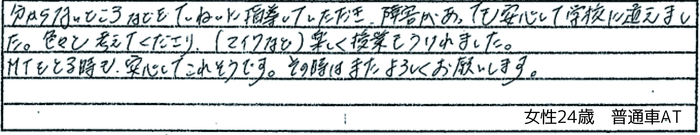 分からないところなどをていねいに指導していただき、障害があっても安心して学校に通えまし
た。色々と考えてくださり、(マイクなど)楽しく授業をうけれました。
MTをとる時も、安心してこれそうです。その時はまたよろしくお願いします。
女性24歳 普通車AT